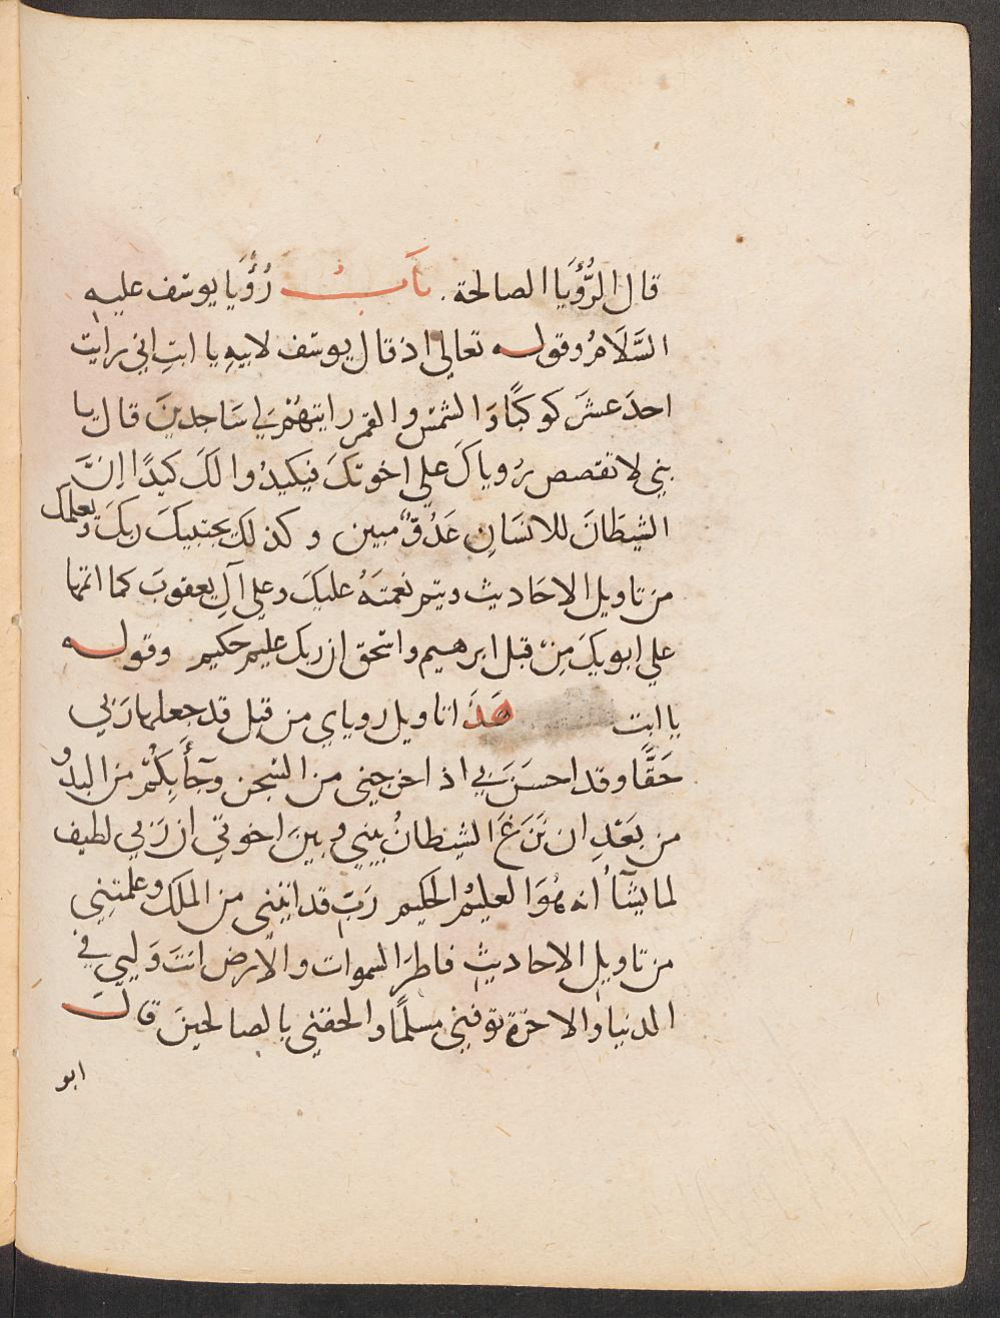 قال الرُّؤْيَا الصالحة . بَابُ رُؤْيَا يوسف عليه
السَّلَامُ وقوله تعالى اذ قال يوسف لابيهِ يا ابتِ اني رايت
احدَ عشَرَ كوكبًا وَالشمسَ والقمر رايتهُمْ لي سَاجدينَ قال يا
بني لا تقصص رُوياكَ علي اخوتكَ فيكيدُوا لكَ كيدًا اِنَّ
الشيطَانَ للانسَانِ عَدُوٌّ مبين وكذلك يجتبيكَ ربكَ ويعلمك
من تاويل الاحَاديث ويتم نعمتَهُ عليكَ وعلي آلِ يعقوبَ كما اتمها
علي ابويكَ مِنْ قبل ابرهيم واسحق ان ربك عليم حكيم وقوله
يا ابت هَذَا تاويل روياي من قبل قد جعلها رَبي
حَقًّا وقد احسَنَ بي اذ اخرجني من السجن وجَآءَ بِكُمْ من البدو
من بَعْدِ ان نَّزَغَ الشيطانُ بيني وبينَ اخوتي ان رَبي لطيف
لما يشَآءُ انه هُوَ العليْمُ الحكيم رَبِّ قد اتيتني من الملك وعلمتِني
من تاويلِ الاحاديثِ فاطرَ السموات والارض انتَ وَليي في
الدنيا والاخرة توفني مسلمًا والحقني بالصالحينَ قال
ابو